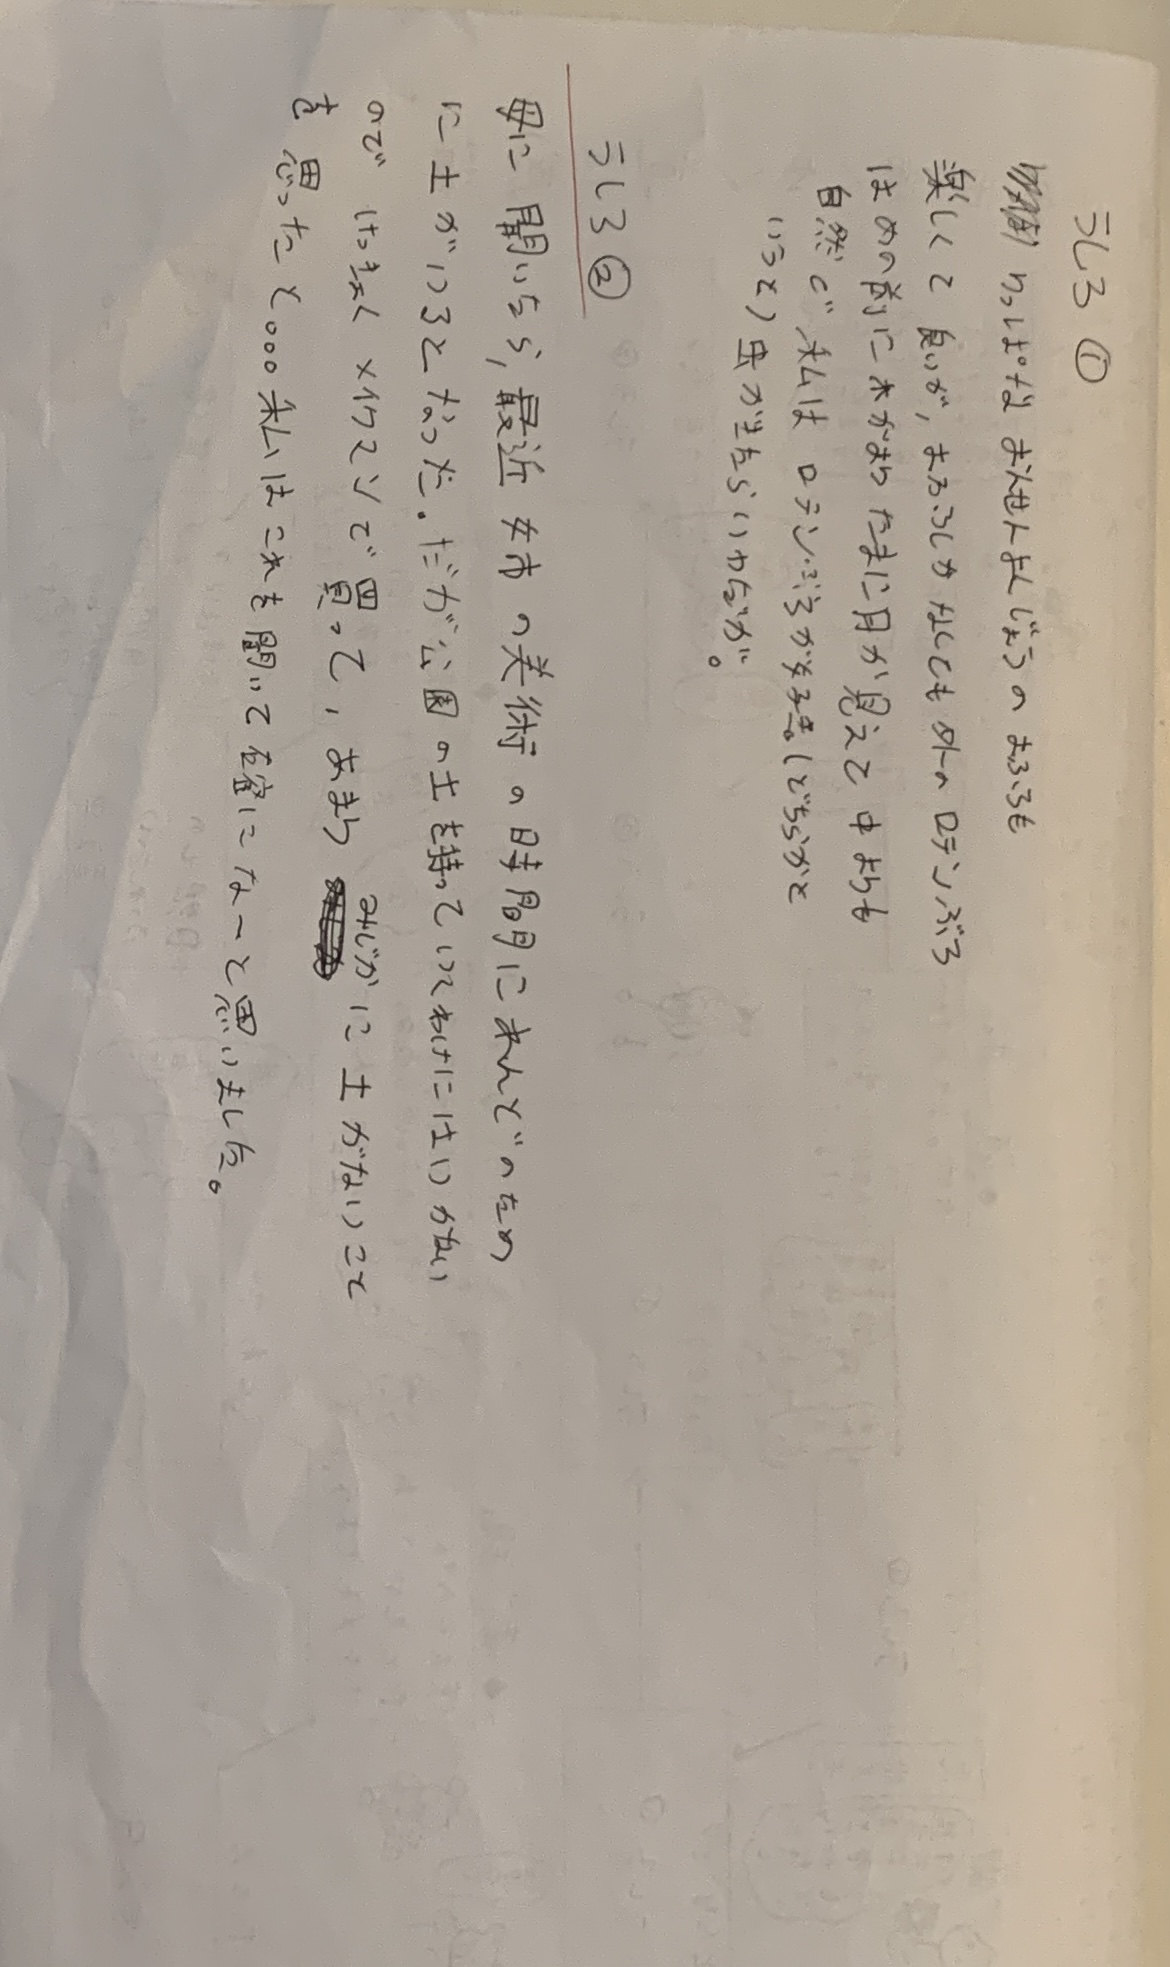 うしろ①
りっぱな おんせんよくじょうの おふろも
楽しくて 良いが, おふろしかなくても 外のロテンぶろ
はめの前に木があり たまに月が見えて 中よりも
自然で 私は ロテンぶろが好き。(どちらかと
いうと) 虫がきたらいやだが。
うしろ②
母に聞いたら, 最近 姉の美術の時間にねんどのため
に土がいるとなった. だが公園の土を持っていくわけにはいかない
ので けっきょく メイクマンで買って, あまり みじかに土がないこと
を思ったと。。。私はこれを聞いて確にな〜と思いました。